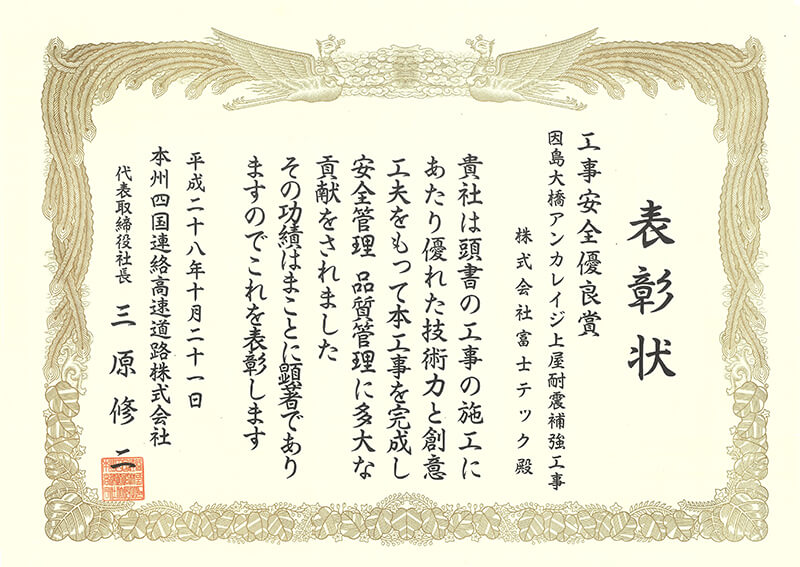 表彰状
工事安全優良賞
因島大橋アンカレイジ上屋耐震補強工事
株式会社富士テック殿
貴社は頭書の工事の施工に
あたり優れた技術力と創意
工夫をもって本工事を完成し
安全管理 品質管理に多大な
貢献をされました
その功績はまことに顕著であり
ますのでこれを表彰します
平成二十八年十月二十一日
本州四国連絡高速道路株式会社
代表取締役社長 三原修二